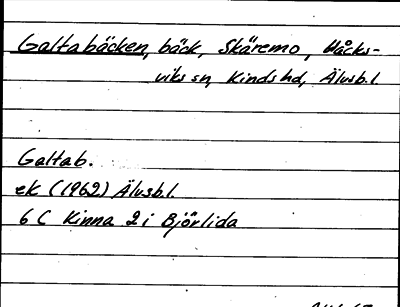 Galtabäcken, bäck, Skäremo, Håcks-
viks sn, Kinds hd, Älvsb.l.
Galtab.
ek (1962) Älvsb.l.
6 C Kinna 2 i Björlida